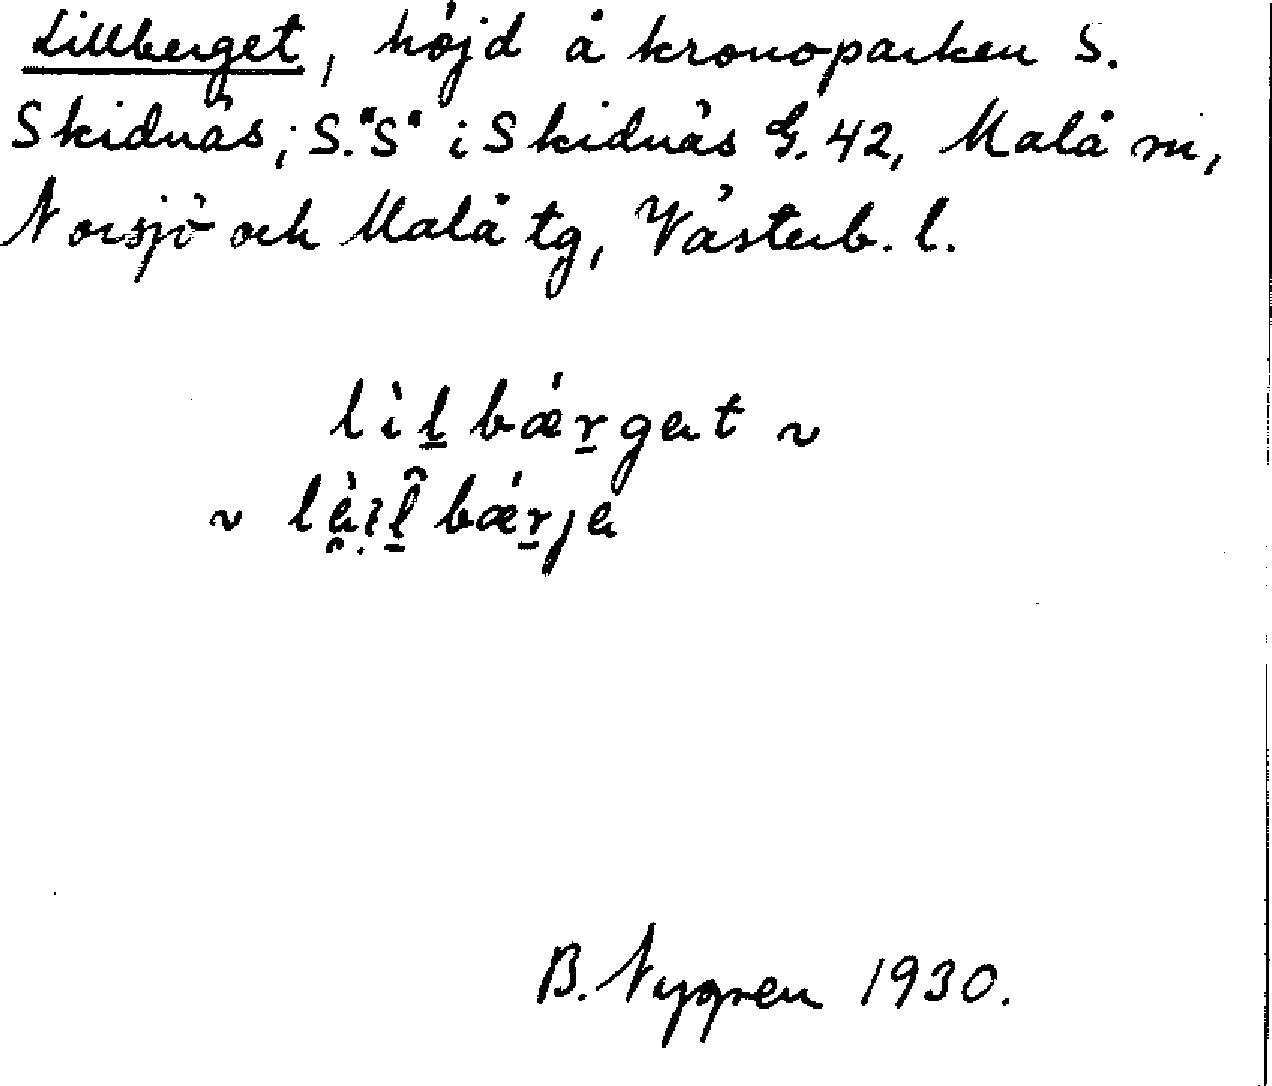 Lillberget, höjd å kronoparken S.
Skidnäs; S. "S" i Skidnäs G. 42, Malå sn,
Norsjö och Malå tg, Västerb. l.
lìḻ bǽṟget ~
~ bǽṟje
B. Nygren 1930.